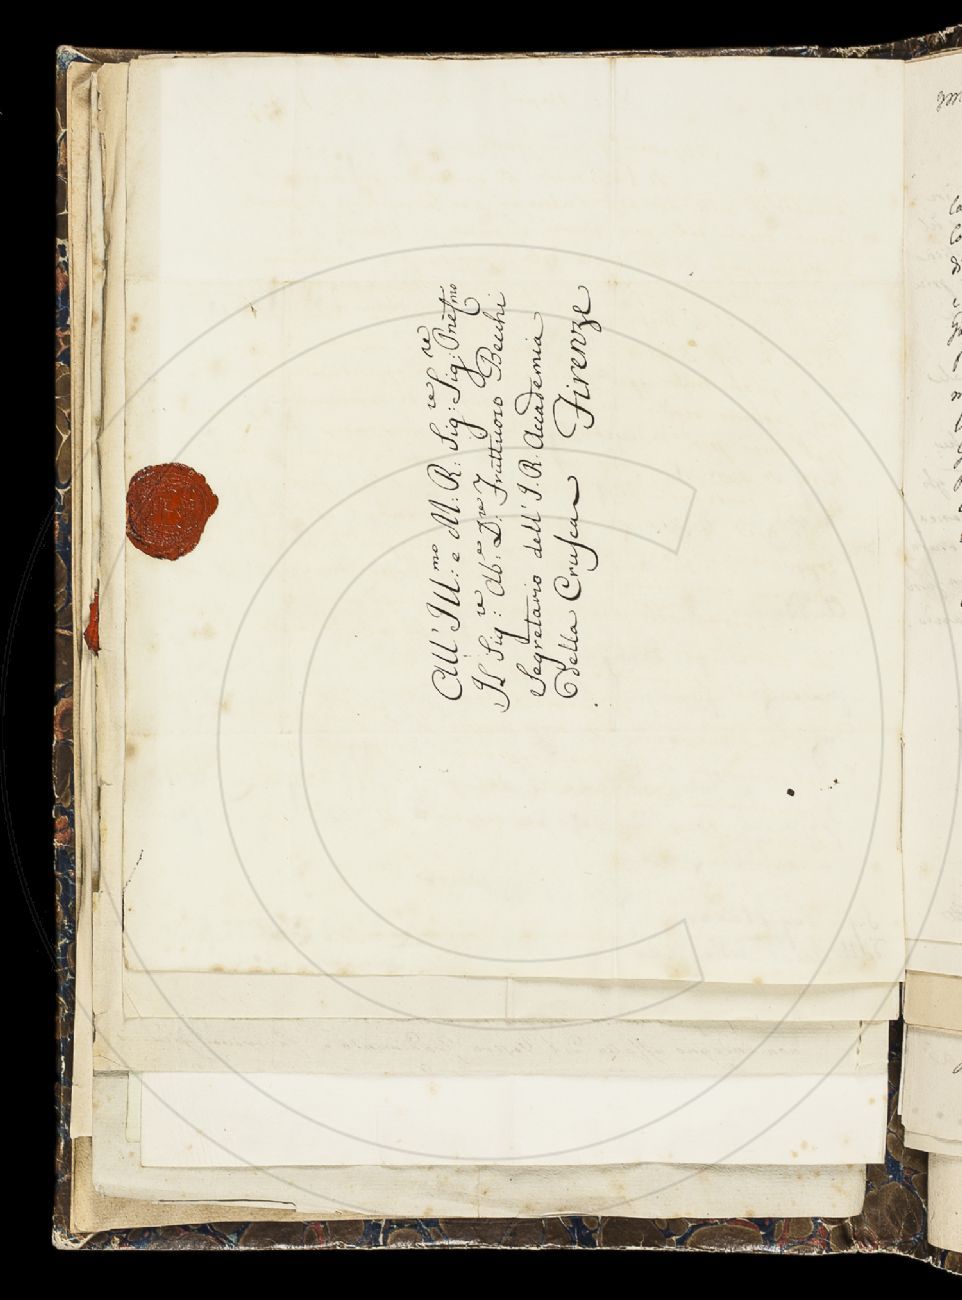 All' Ill.mo: e M: R: Sig:re Sig:re Pne Cmo
Il Sig:re Ab:e D:re Fruttuoso Becchi
Segretario dell' I. R. Accademia
della Crusca Firenze